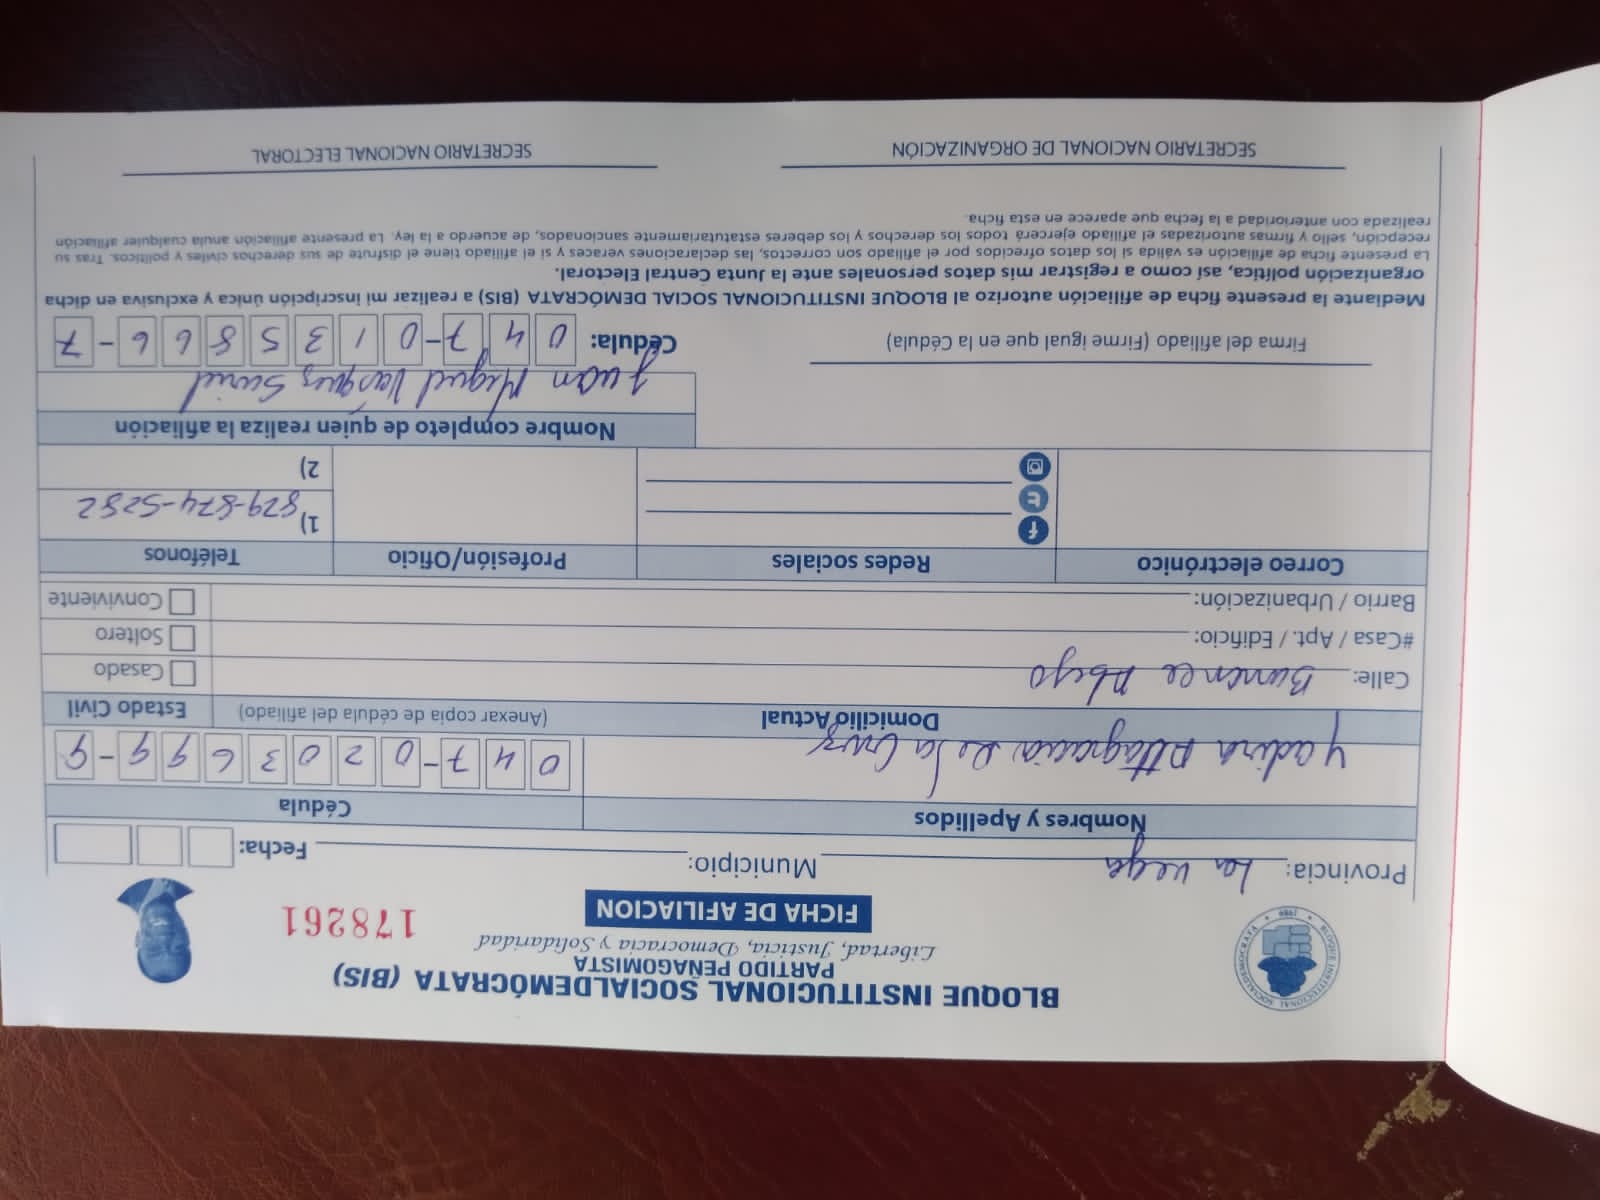 BLOQUE INSTITUCIONAL SOCIALDEMÓCRATA (BIS)
PARTIDO PEÑAGOMISTA
Libertad, Justicia, Democracia y Solidaridad
FICHA DE AFILIACION
178261
BLOQUE INSTITUCIONAL SOCIALDEMOCRATA
Provincia: La vega Municipio: Fecha:
Nombres y Apellidos Cédula
Yadira Altagracia de la Cruz 047-0203699-9
Domicilio Actual (Anexar copia de cédula del afiliado) Estado Civil
Calle: Casado
#Casa / Apt. / Edificio: Soltero
Barrio / Urbanización: Conviviente
Correo electrónico Redes sociales Profesión/Oficio Teléfonos
1) 829-874-5282
2)
Nombre completo de quien realiza la afiliación
Juan Miguel Vásquez
Firma del afiliado (Firme igual que en la Cédula) Cédula: 047-0135866-7
Mediante la presente ficha de afiliación autorizo al BLOQUE INSTITUCIONAL SOCIAL DEMÓCRATA (BIS) a realizar mi inscripción única y exclusiva en dicha
organización política, así como a registrar mis datos personales ante la Junta Central Electoral.
La presente ficha de afiliación es válida si los datos ofrecidos por el afiliado son correctos, las declaraciones veraces y si el afiliado tiene el disfrute de sus derechos civiles y políticos. Tras su
recepción, sello y firmas autorizadas el afiliado ejercerá todos los derechos y los deberes estatutariamente sancionados, de acuerdo a la ley. La presente afiliación anula cualquier afiliación
realizada con anterioridad a la fecha que aparece en esta ficha.
SECRETARIO NACIONAL DE ORGANIZACIÓN SECRETARIO NACIONAL ELECTORAL